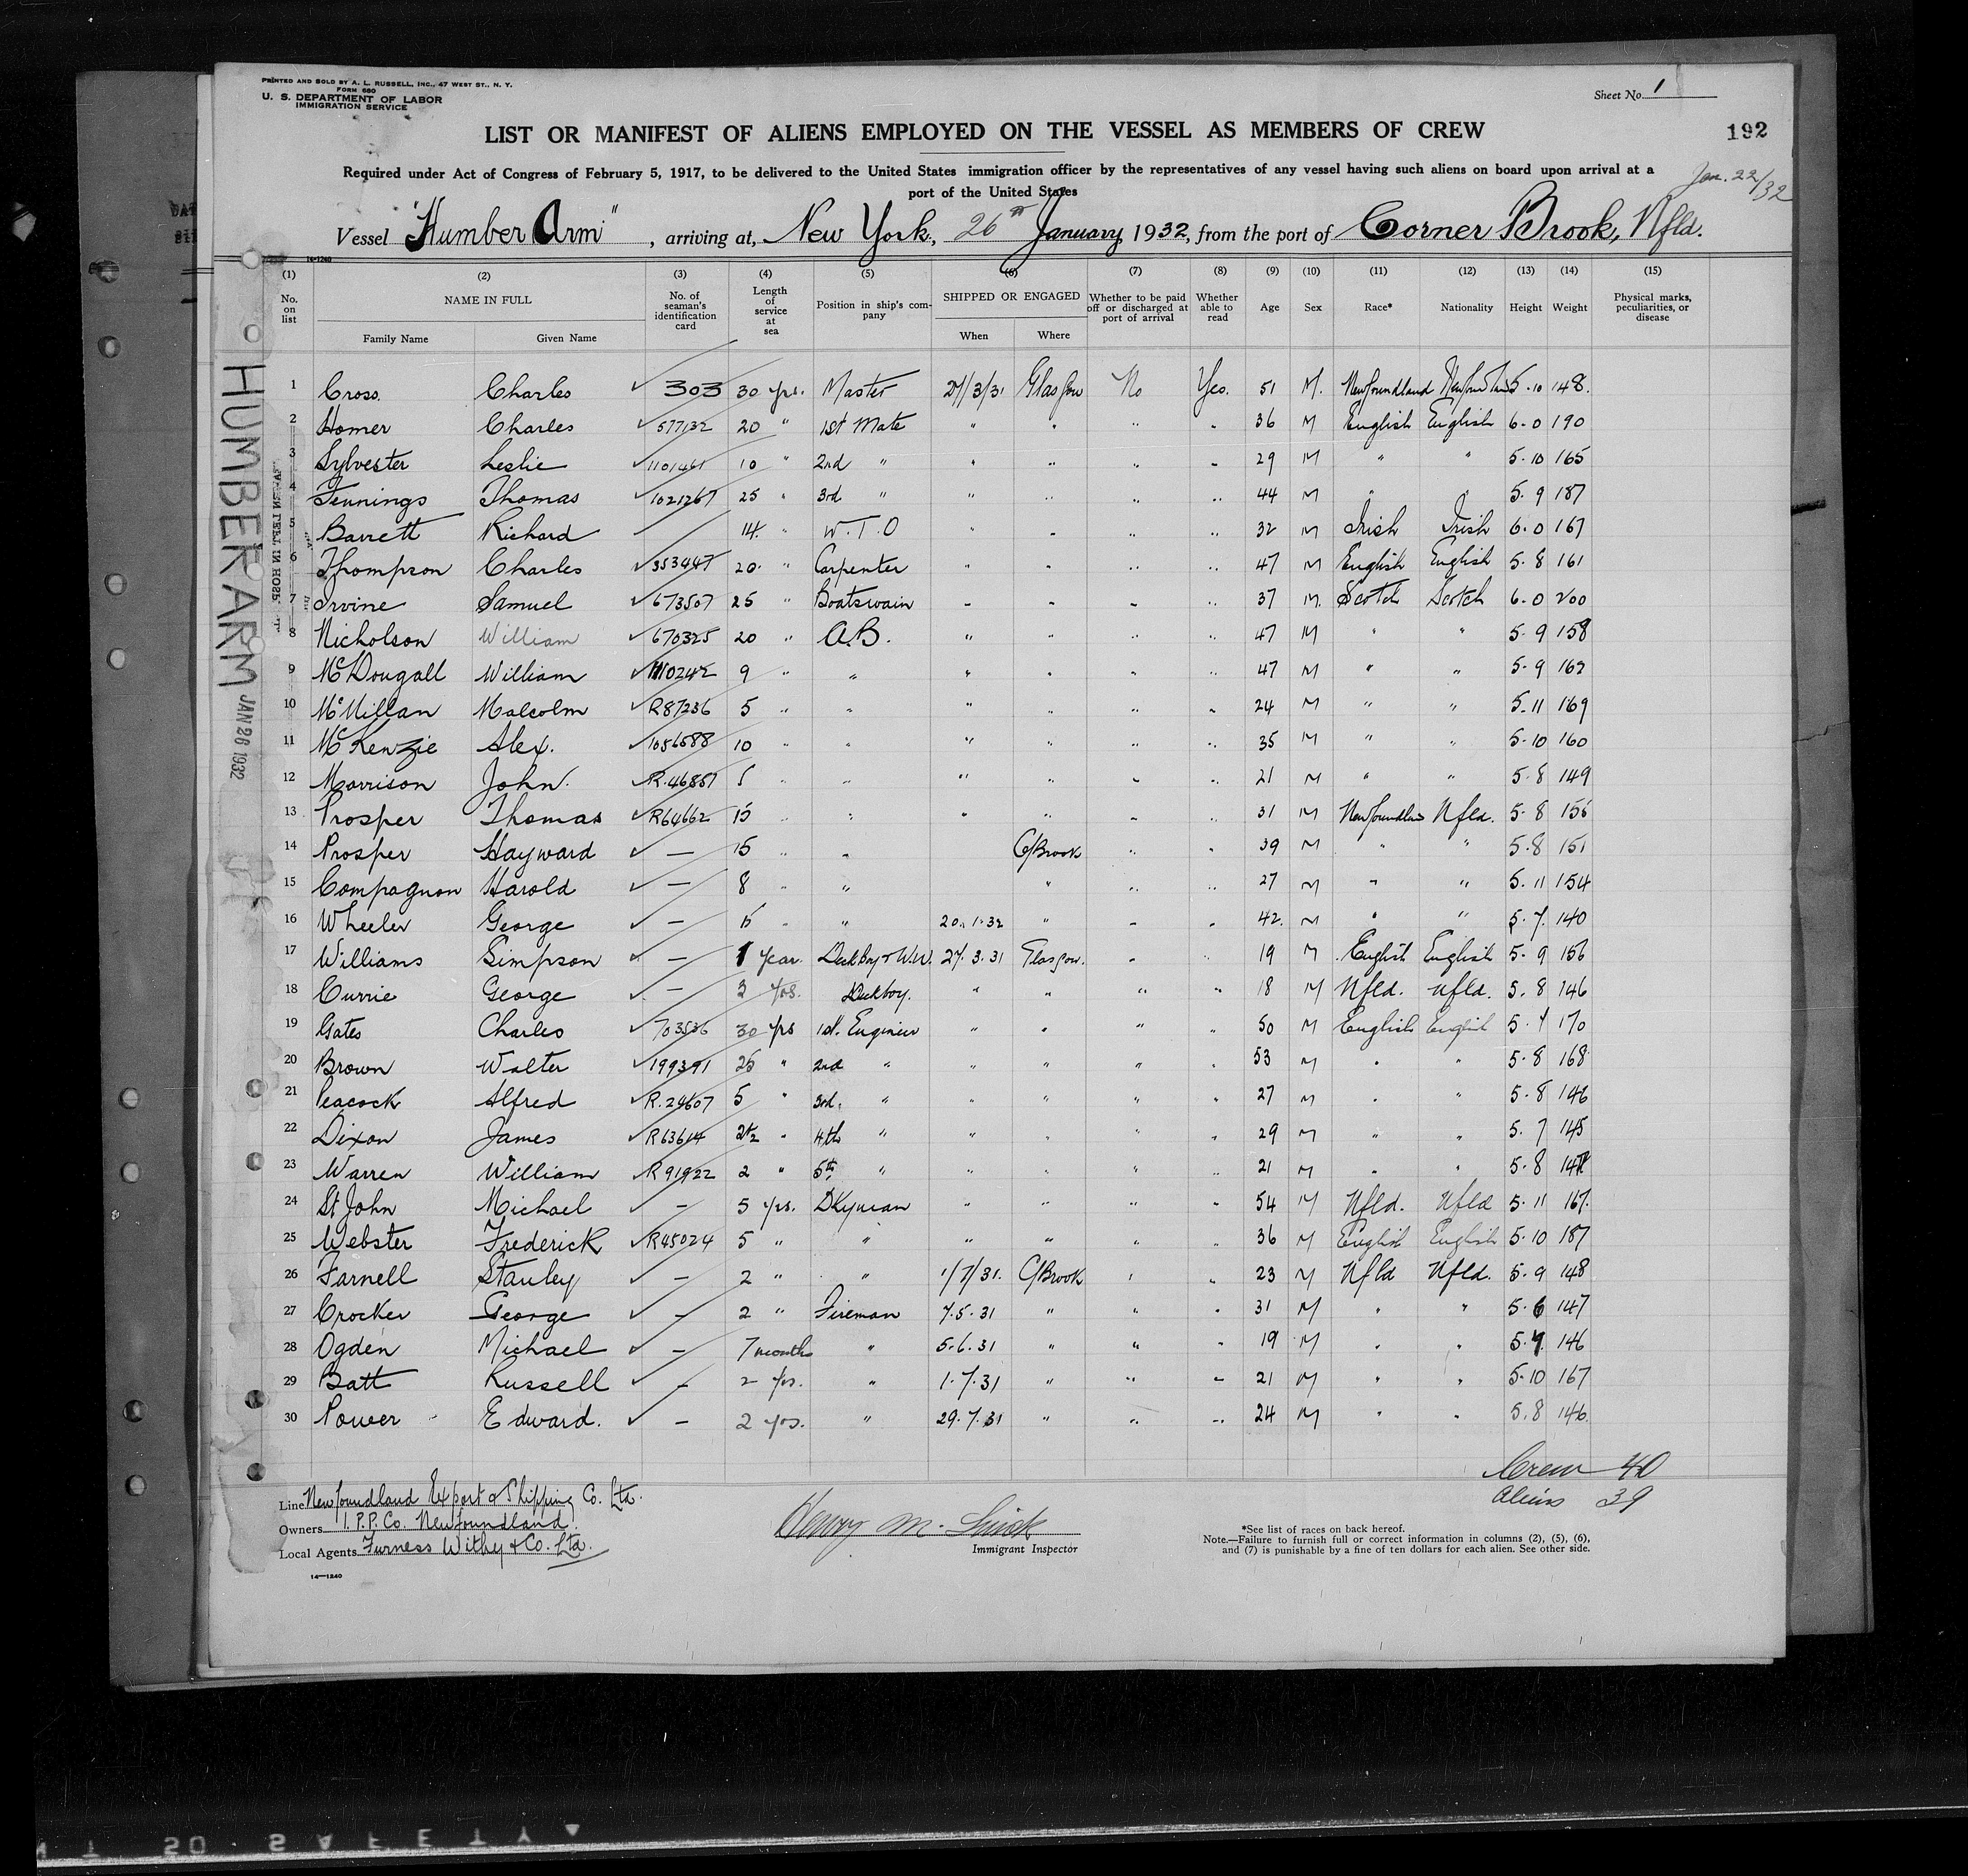 PRINTED AND SOLD BY A. L. RUSSELL, INC., 47 WEST ST., N. Y.
FORM 680
U. S. DEPARTMENT OF LABOR
IMMIGRATION SERVICE
Sheet No. 1
LIST OR MANIFEST OF ALIENS EMPLOYED ON THE VESSEL AS MEMBERS OF CREW
192
Required under Act of Congress of February 5, 1917, to be delivered to the United States immigration officer by the representatives of any vessel having such aliens on board upon arrival at a
port of the United States
Jan. 22/32
Vessel "Humber Arm", arriving at, New York, 26th January, 1932, from the port of Corner Brook, Nfld.
14-1240
(1) (2) (3) (4) (5) (6) (7) (8) (9) (10) (11) (12) (13) (14) (15)
No. on list NAME IN FULL Family Name Given Name No. of seaman's identification card Length of service at sea Position in ship's company SHIPPED OR ENGAGED When Where Whether to be paid off or discharged at port of arrival Whether able to read Age Sex Race* Nationality Height Weight Physical marks, peculiarities, or disease
1 Cross Charles ✓ 303 30 yrs. Master 27/3/31 Glasgow No Yes. 51 M. Newfoundland Newfoundland 5.10 148.
2 Homer Charles ✓ 577132 20 " 1st Mate " " " " 36 M English English 6.0 190
3 Sylvester Leslie ✓ 1101461 10 " 2nd " " " " " 29 M " " 5.10 165
4 Jennings Thomas ✓ 1021267 25 " 3rd " " " " " 44 M " " 5.9 187
5 Barrett Richard 14. " W.T.O " " " " 32 M Irish Irish 6.0 167
6 Thompson Charles ✓ 353447 20. " Carpenter " " " " 47 M English English 5.8 161
7 Irvine Samuel ✓ 673507 25 " Boatswain " " " " 37 M. Scotch Scotch 6.0 200
8 Nicholson William ✓ 670325 20 " A.B. " " " " 47 M " " 5.9 158
9 McDougall William ✓ 1110242 9 " " " " " " 47 M " " 5.9 162
10 McMillan Malcolm ✓ R87236 5 " " " " " " 24 M " " 5.11 169
11 McKenzie Alex. ✓ 1056588 10 " " " " " " 35 M " " 5.10 160
12 Morrison John. ✓ R.46857 5 " " " " " " 21 M " " 5.8 149
13 Prosper Thomas ✓ R64662 15 " " " " " 31 M Newfoundland Nfld. 5.8 155
14 Prosper Hayward ✓ — 15 " " C/Brook " " 39 M " " 5.8 151
15 Compagnon Harold ✓ — 8 " " " " " 27 M " " 5.11 154
16 Wheeler George ✓ — 15 " " 20.1.32 " " " 42. M " " 5.7. 140
17 Williams Simpson ✓ — 1 year. Deckboy & W.W. 27.3.31 Glasgow. " " 19 M English English 5.9 156
18 Currie George ✓ — 3 yrs. Deckboy. " " " " 18 M Nfld. Nfld. 5.8 146
19 Gates Charles ✓ 703536 30 yrs 1st. Engineer " " " " 50 M English English 5.7 170
20 Brown Walter ✓ 199391 25 " 2nd " " " " " 53 M " " 5.8 168
21 Peacock Alfred ✓ R.24607 5 " 3rd. " " " " " 27 M " " 5.8 146
22 Dixon James ✓ R63614 2½ " 4th " " " " " 29 M " " 5.7 145
23 Warren William ✓ R91922 2 " 5th " " " " " 21 M " " 5.8
24 St John Michael ✓ — 5 yrs. DKyman " " " " 54 M Nfld. Nfld 5.11 167.
25 Webster Frederick ✓ R45024 5 " " " " " " 36 M English English 5.10 187
26 Farnell Stanley ✓ — 2 " " 1/7/31. C/Brook " " 23 M Nfld Nfld. 5.9 148
27 Crocker George ✓ — 2 " Fireman 7.5.31 " " " 31 M " " 5.6 147
28 Ogden Michael ✓ — 7 months " 5.6.31 " " " 19 M " " 5.7. 146
29 Batt Russell ✓ — 2 yrs. " 1.7.31 " " " 21 M " " 5.10 167
30 Power Edward. ✓ — 2 yrs. " 29.7.31 " " " 24 M " " 5.8 146.
Crew 40
Aliens 39
Line Newfoundland Export & Shipping Co. Ltd.
Owners I.P.P. Co. Newfoundland
Local Agents Furness Withy & Co. Ltd.
14—1240
Henry M.
Immigrant Inspector
*See list of races on back hereof.
Note.—Failure to furnish full or correct information in columns (2), (5), (6),
and (7) is punishable by a fine of ten dollars for each alien. See other side.
HUMBER ARM JAN 26 1932
SAFETY